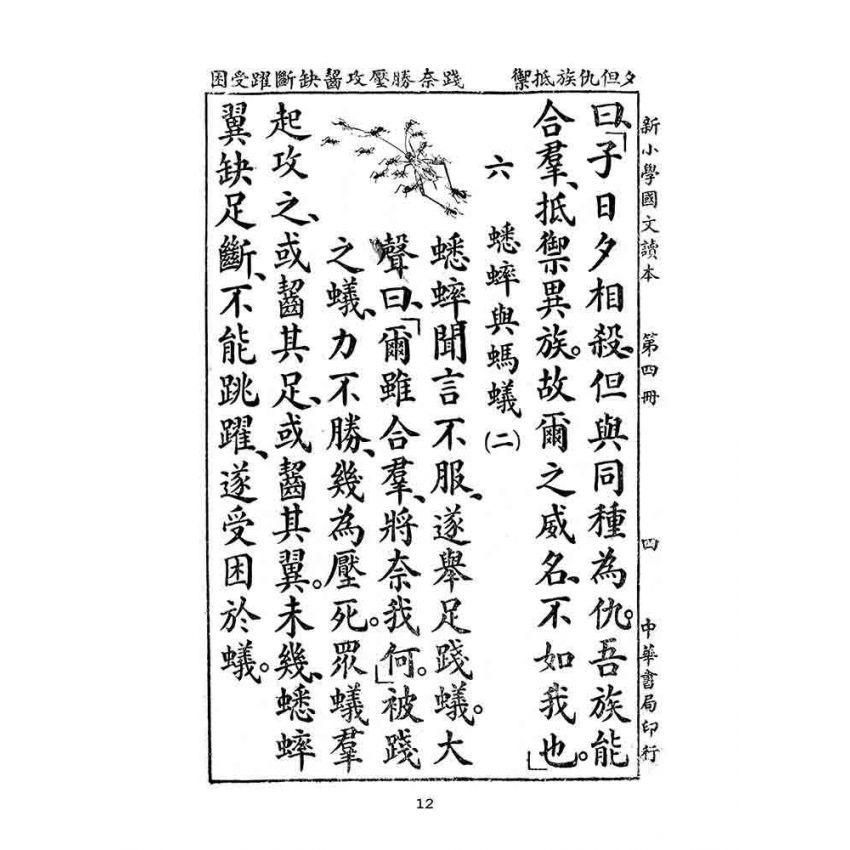 夕但仇族抵禦　踐奈勝壓攻齧缺斷躍受困
新小學國文讀本　第四冊　四　中華書局印行
曰、「子日夕相殺、但與同種為仇。吾族能
合羣、抵禦異族。故爾之威名、不如我也。」
六　蟋蟀與螞蟻(二)
蟋蟀聞言不服、遂舉足踐蟻。大
聲曰、「爾雖合羣、將奈我何。」被踐
之蟻、力不勝、幾為壓死。眾蟻羣
起攻之、或齧其足、或齧其翼。未幾、蟋蟀
翼缺足斷、不能跳躍、遂受困於蟻。
12